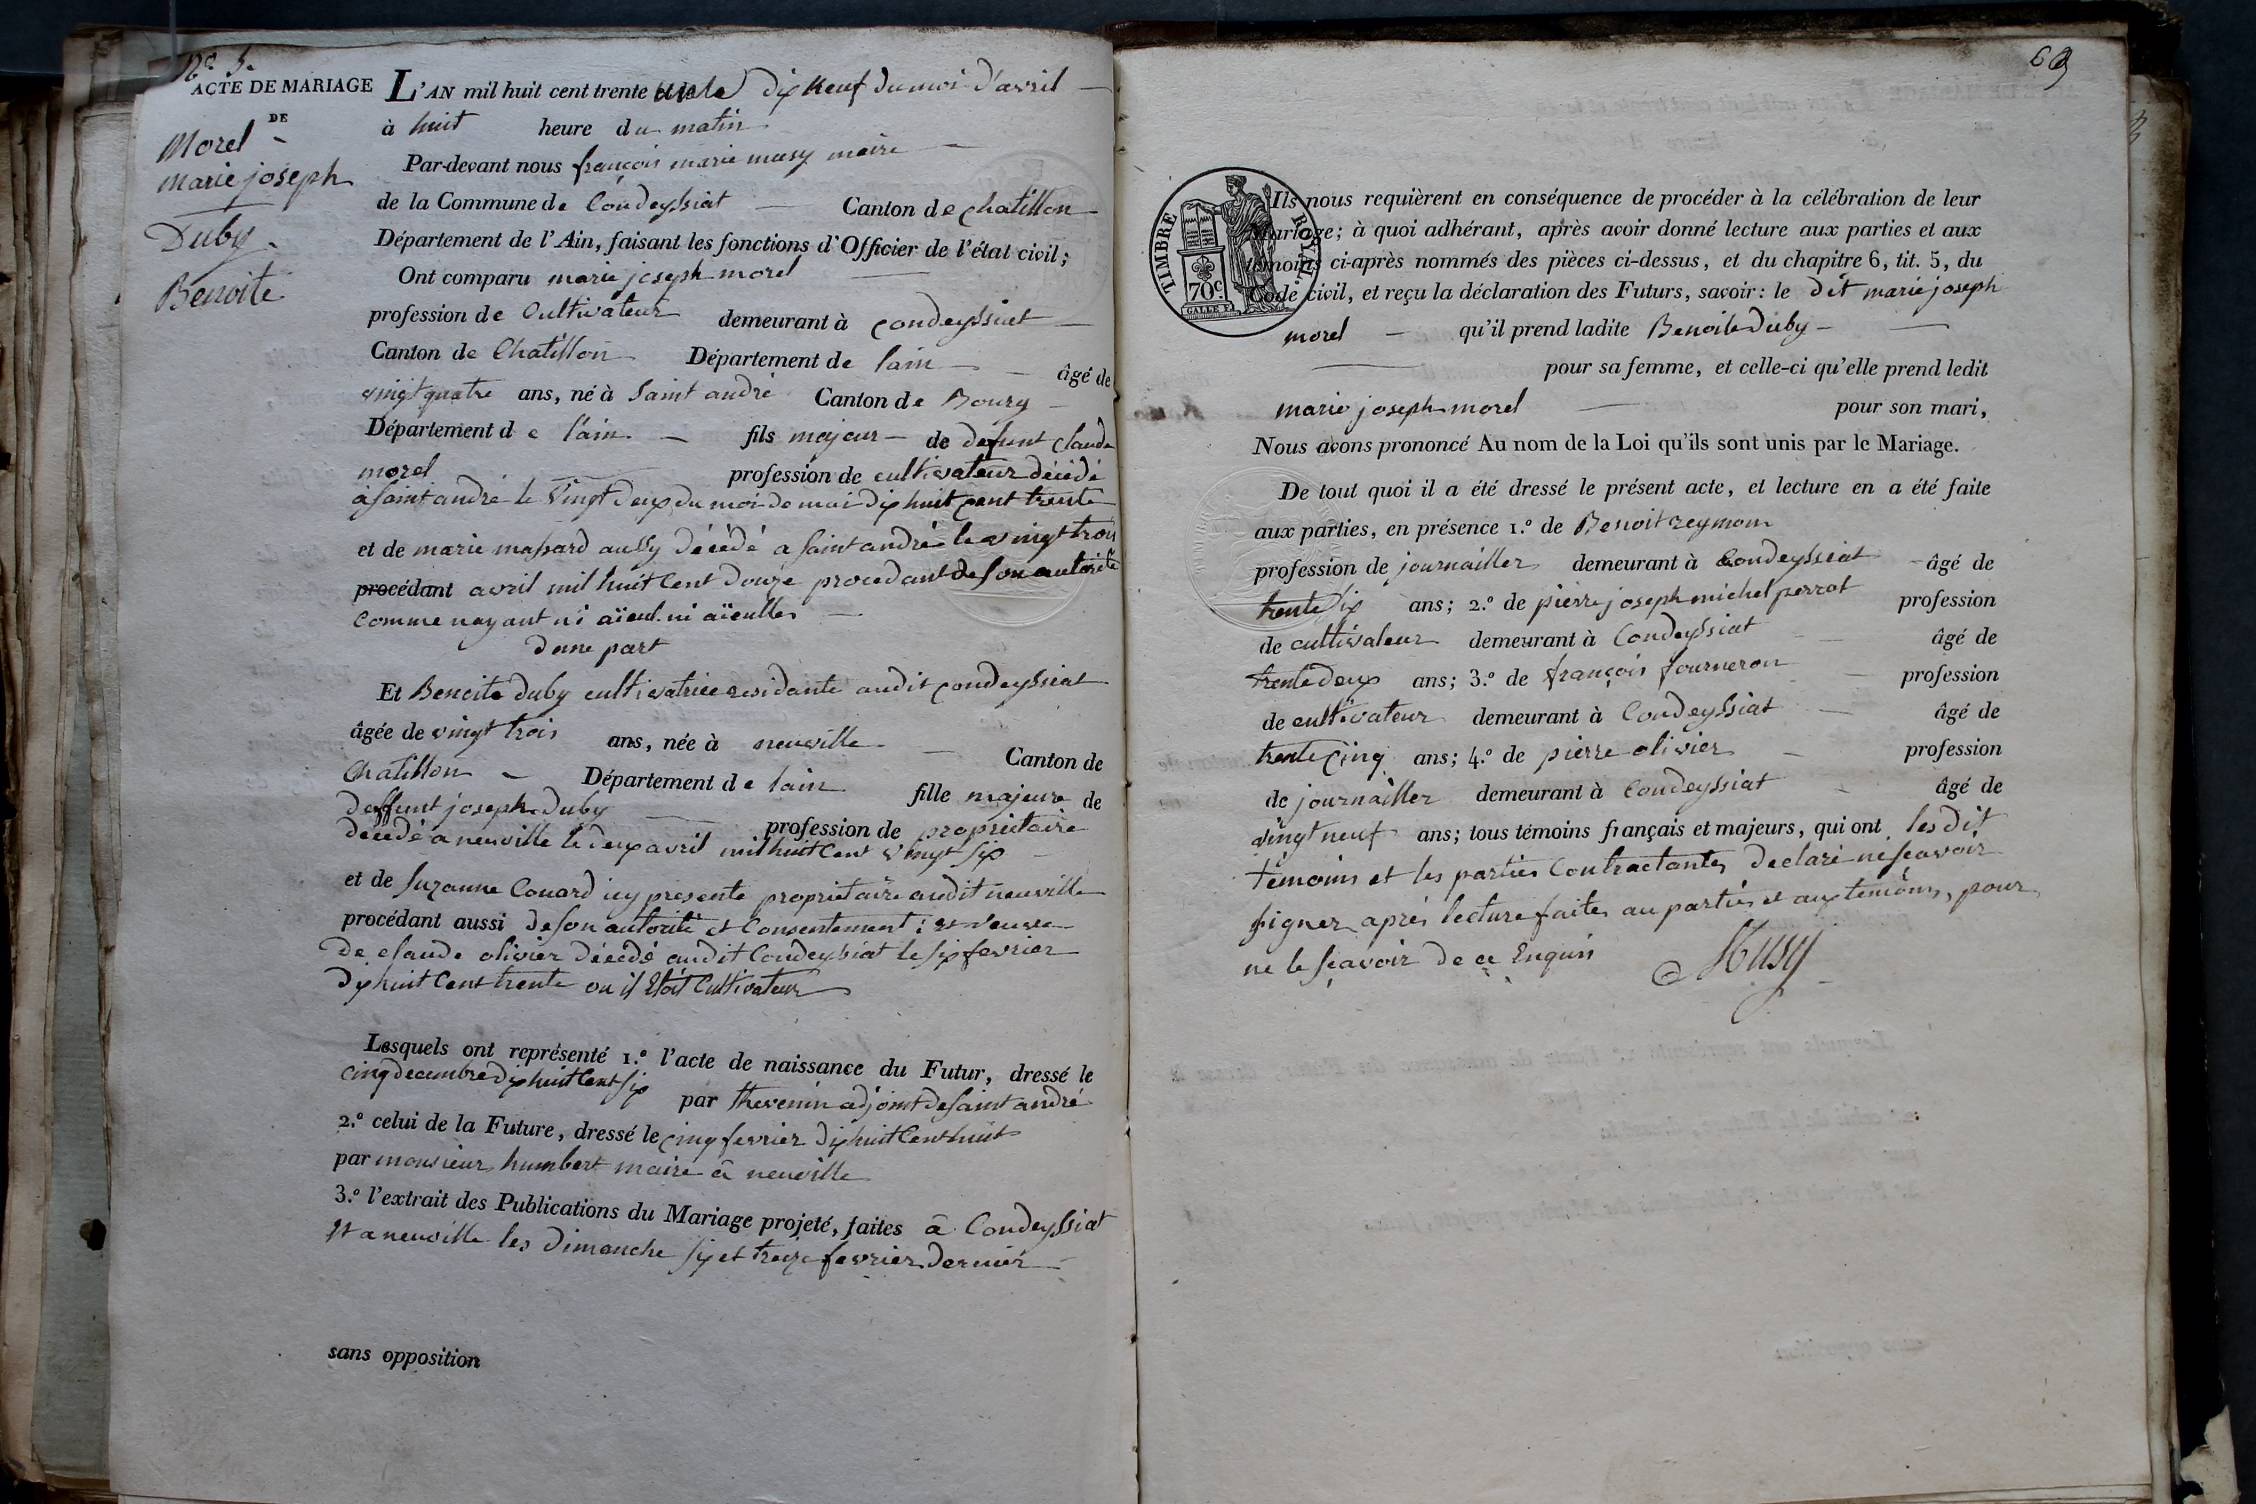 N.o 5.
ACTE DE MARIAGE
DE
Morel
marie joseph
Duby
Benoite
L'AN mil huit cent trente un le dix neuf du moi d'avril
à huit heure du matin
Par-devant nous françois marie musy maire
de la Commune de Condeyssiat Canton de chatillon
Département de l'Ain, faisant les fonctions d'Officier de l'état civil;
Ont comparu marie joseph morel
profession de Cultivateur demeurant à Condeyssiat
Canton de Chatillon Département de lain âgé de
vingt quatre ans, né à Saint andré Canton de Bourg
Département de l'ain fils majeur de défunt claude
morel profession de cultivateur décédé
à Saint andré le vingt deux du moi de mai dix huit cent trente
et de marie massard aussy décédé a Saint andré le vingt trois
procédant avril mil huit Cent douze procedant de son autorité
comme nayant ni aïeul ni aïeulles
dune part
Et Benoite duby cultivatrice residante audit Condeyssiat
âgée de vingt trois ans, née à neuville Canton de
Chatillon Département de lain fille majeure de
deffunt joseph Duby profession de propriétaire
décédé a neuville le deux avril mil huit Cent vingt six
et de Suzanne Couard icy presente propriétaire audit neuville
procédant aussi de son autorité et Consentement; et veuve
de claude olivier décédé audit Condeyssiat le six fevrier
dix huit Cent trente ou il Etoit Cultivateur
Lesquels ont représenté 1.º l'acte de naissance du Futur, dressé le
cinq decembre dix huit Cent six par thevenin adjoint de Saint andré
2.º celui de la Future, dressé le cinq fevrier dix huit Cent huit
par monsieur humbert maire à neuville
3.º l'extrait des Publications du Mariage projeté, faites à Condeyssiat
et a neuville les dimanche six et treize fevrier dernier
sans opposition
69
TIMBRE ROYAL
70c.
Ils nous requièrent en conséquence de procéder à la célébration de leur
Mariage; à quoi adhérant, après avoir donné lecture aux parties et aux
témoins ci-après nommés des pièces ci-dessus, et du chapitre 6, tit. 5, du
Code civil, et reçu la déclaration des Futurs, savoir: le dit marie joseph
morel qu'il prend ladite Benoite Duby
pour sa femme, et celle-ci qu'elle prend ledit
marie joseph morel pour son mari,
Nous avons prononcé Au nom de la Loi qu'ils sont unis par le Mariage.
De tout quoi il a été dressé le présent acte, et lecture en a été faite
aux parties, en présence 1.º de Benoit reymon
profession de journailler demeurant à Condeyssiat âgé de
trente six ans; 2.º de pierre joseph michel perrot profession
de cultivateur demeurant à Condeyssiat âgé de
trente deux ans; 3.º de françois fourneron profession
de cultivateur demeurant à Condeyssiat âgé de
trente cinq ans; 4.º de pierre olivier profession
de journailler demeurant à Condeyssiat âgé de
vingt neuf ans; tous témoins français et majeurs, qui ont les dit
témoins et les parties Contractantes declaré ne scavoir
signer après lecture faites au parties et aux temoins, pour
ne le scavoir de ce Enquis
Musy